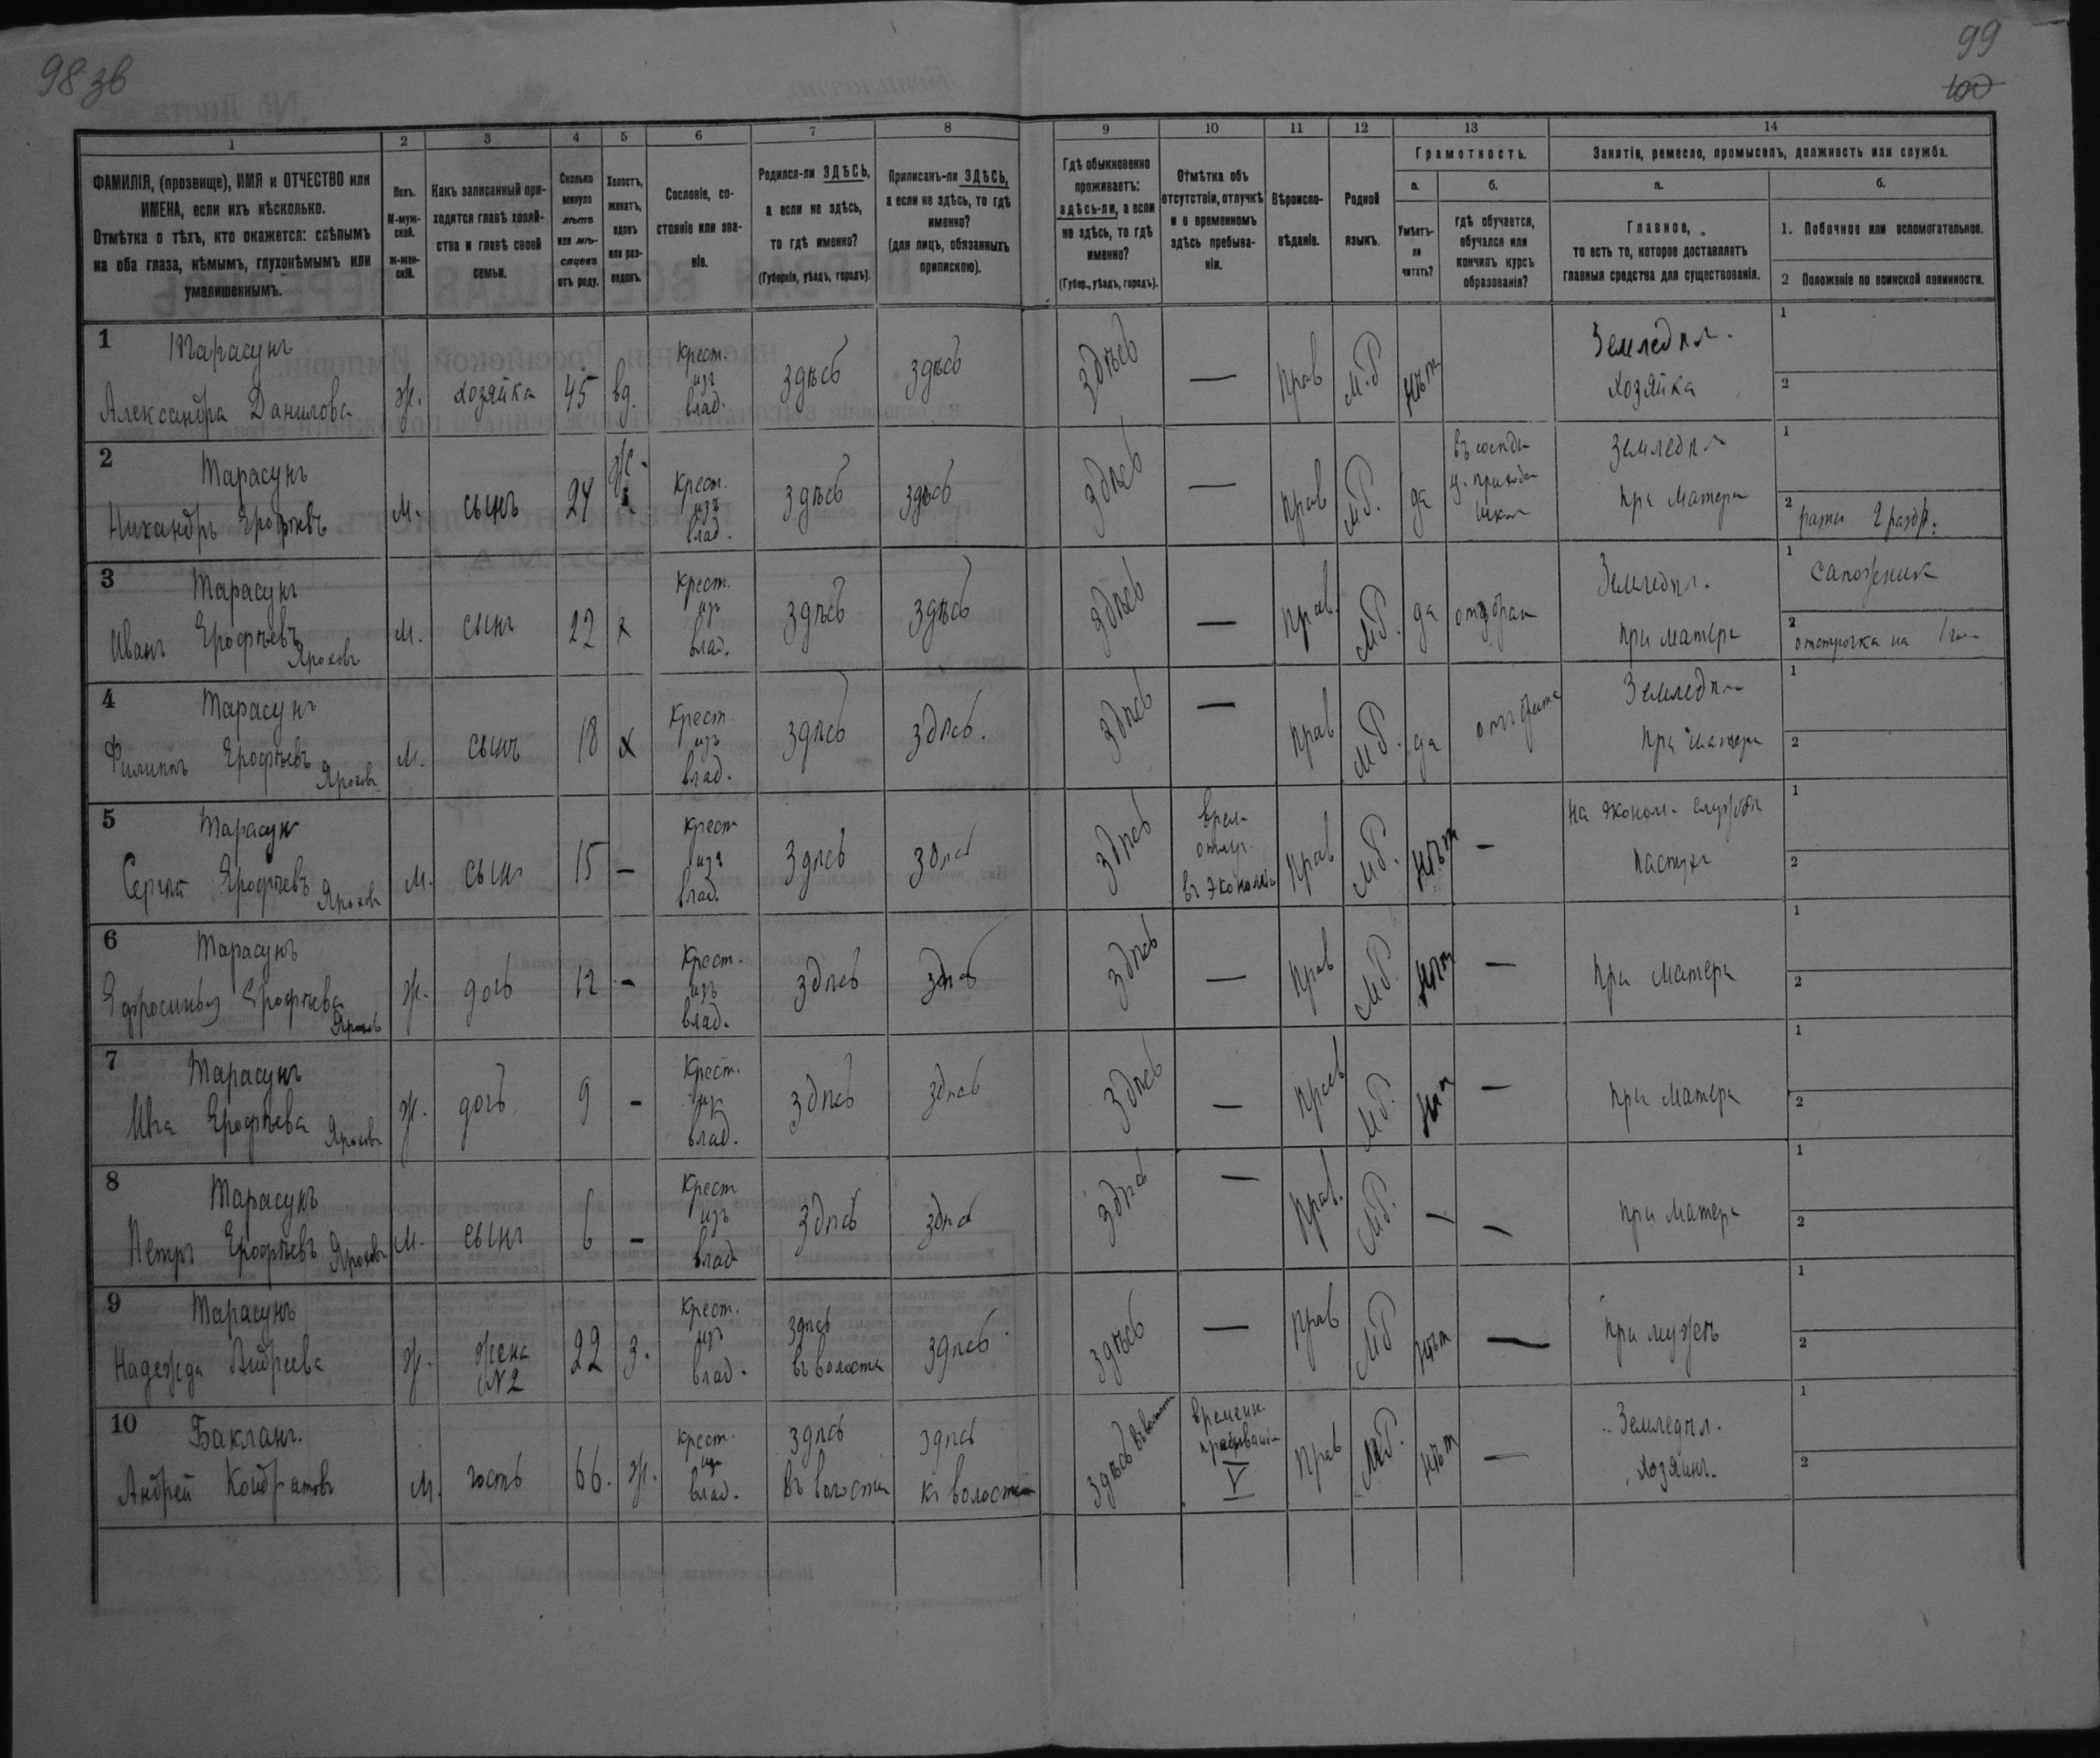 98 зв
99
100
1
2
3
4
5
6
7
8
9
10
11
12
13
14
ФАМИЛІЯ, (прозвище), ИМЯ и ОТЧЕСТВО или
ИМЕНА, если ихъ нѣсколько.
Отмѣтка о тѣхъ, кто окажется: слѣпымъ
на оба глаза, нѣмымъ, глухонѣмымъ или
умалишеннымъ.
Полъ.
М-муж-
ской.
ж-жен-
скій.
Какъ записанный при-
ходится главѣ хозяй-
ства и главѣ своей
семьи.
Сколько
минуло
лѣтъ
или мѣ-
сяцевъ
отъ роду.
Холостъ,
женатъ,
вдовъ
или раз-
веденъ.
Сословіе, со-
стояніе или зва-
ніе.
Родился-ли ЗДѢСЬ,
а если не здѣсь,
то гдѣ именно?
(Губернія, уѣздъ, городъ).
Приписанъ-ли ЗДѢСЬ,
а если не здѣсь, то гдѣ
именно?
(для лицъ, обязанныхъ
припискою).
Гдѣ обыкновенно
проживаетъ:
здѣсь-ли, а если
не здѣсь, то гдѣ
именно?
(Губер., уѣздъ, городъ).
Отмѣтка объ
отсутствіи, отлучкѣ
и о временномъ
здѣсь пребыва-
ніи.
Вѣроиспо-
вѣданіе.
Родной
языкъ.
Грамотность.
а.
Умѣетъ-
ли
читать?
б.
гдѣ обучается,
обучался или
кончилъ курсъ
образованія?
Занятіе, ремесло, промыселъ, должность или служба.
а.
Главное,
то есть то, которое доставляетъ
главныя средства для существованія.
б.
1. Побочное или вспомогательное.
2 Положеніе по воинской повинности.
1 Тарасунъ
Александра Данилова
ж. хозяйка 45 вд.
Крест.
изъ
влад.
здѣсь здѣсь здѣсь — Прав М.Р нѣтъ
Земледѣл.
хозяйка
1
2
2 Тарасунъ
Никандръ Ерофѣевъ
м. сынъ 24 ж.
Крест.
изъ
влад.
здѣсь здѣсь здѣсь — Прав М.Р. да
Земледѣл
при матери
1
2
3 Тарасунъ
Иванъ Ерофѣевъ
Ярохов
м. сынъ 22 х
Крест.
изъ
влад.
здѣсь здѣсь здѣсь — Прав. М.Р. да
Земледѣл.
при матери
1 сапожник
2 отсрочка на 1
4 Тарасунъ
Филиппъ Ерофѣевъ Ярохов
м. сынъ 18 х
Крест.
изъ
влад.
здѣсь здѣсь. здѣсь — Прав М.Р. да
Земледѣл
при матери
1
2
5 Тарасун
Сергѣй Ерофѣевъ Ярохов
м. сынъ 15 —
Крест
изъ
влад.
здѣсь здѣсь здѣсь
врем.
отлуч.
въ экономіи
Прав М.Р. нѣтъ —
на эконом. службѣ
пастухъ
1
2
6 Тарасунъ
Ефросинья Ерофѣева
Ярохов
ж. дочь 12 -
Крест.
изъ
влад.
здѣсь здѣсь здѣсь — Прав М.Р. нѣтъ —
при матери
1
2
7 Тарасунъ
Ерофѣева Ярохов
ж. дочь 9 -
Крест.
изъ
влад.
здѣсь здѣсь здѣсь — Прав М.Р. нѣтъ —
при матери
1
2
8 Тарасунъ
Петръ Ерофѣевъ Ярохов
м. сынъ 6 -
Крест
изъ
влад
здѣсь здѣсь здѣсь — Прав. М.Р. — —
при матери
1
2
9 Тарасунъ
Надежда Андреева
ж. жена
N2
22 з.
Крест.
изъ
влад.
здѣсь
въ волости
здѣсь здѣсь — Прав М.Р нѣтъ —
при мужѣ
1
2
10 Бакланъ.
Андрей Кондратовъ
м. гость 66. ж.
Крест.
изъ
влад.
здѣсь
въ волости
здѣсь
къ волости
здѣсь въ волости
временн.
пребываніе
V
Прав М.Р. нѣтъ —
Земледѣл.
хозяинъ.
1
2